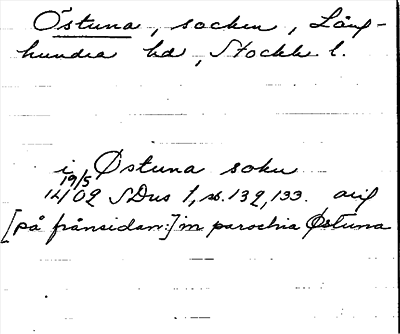 Östuna, socken, Lång-
hundra hd, Stockh l.
i Østuna sokn
19/5
1402 SDns 1, s. 132, 133. orig
[på frånsidan:] in parochia Østuna